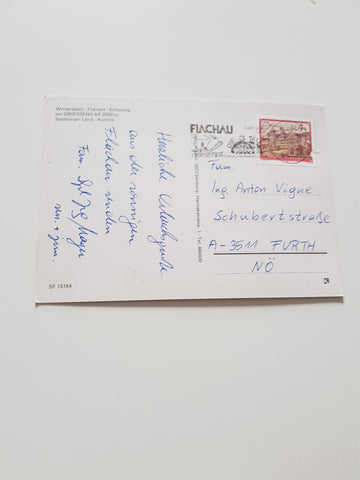 Wintersport · Freizeit · Erholung
am GRIESSENKAR 2000 m
Salzburger Land · Austria
Herzliche Urlaubsgrüße
aus dem sonnigen
Flachau senden
Fam.
sen. + jun.
SF 15164
FLACHAU
4
Fam.
Ing. Anton Vogne
Schubertstraße
A-3511 FURTH
NÖ